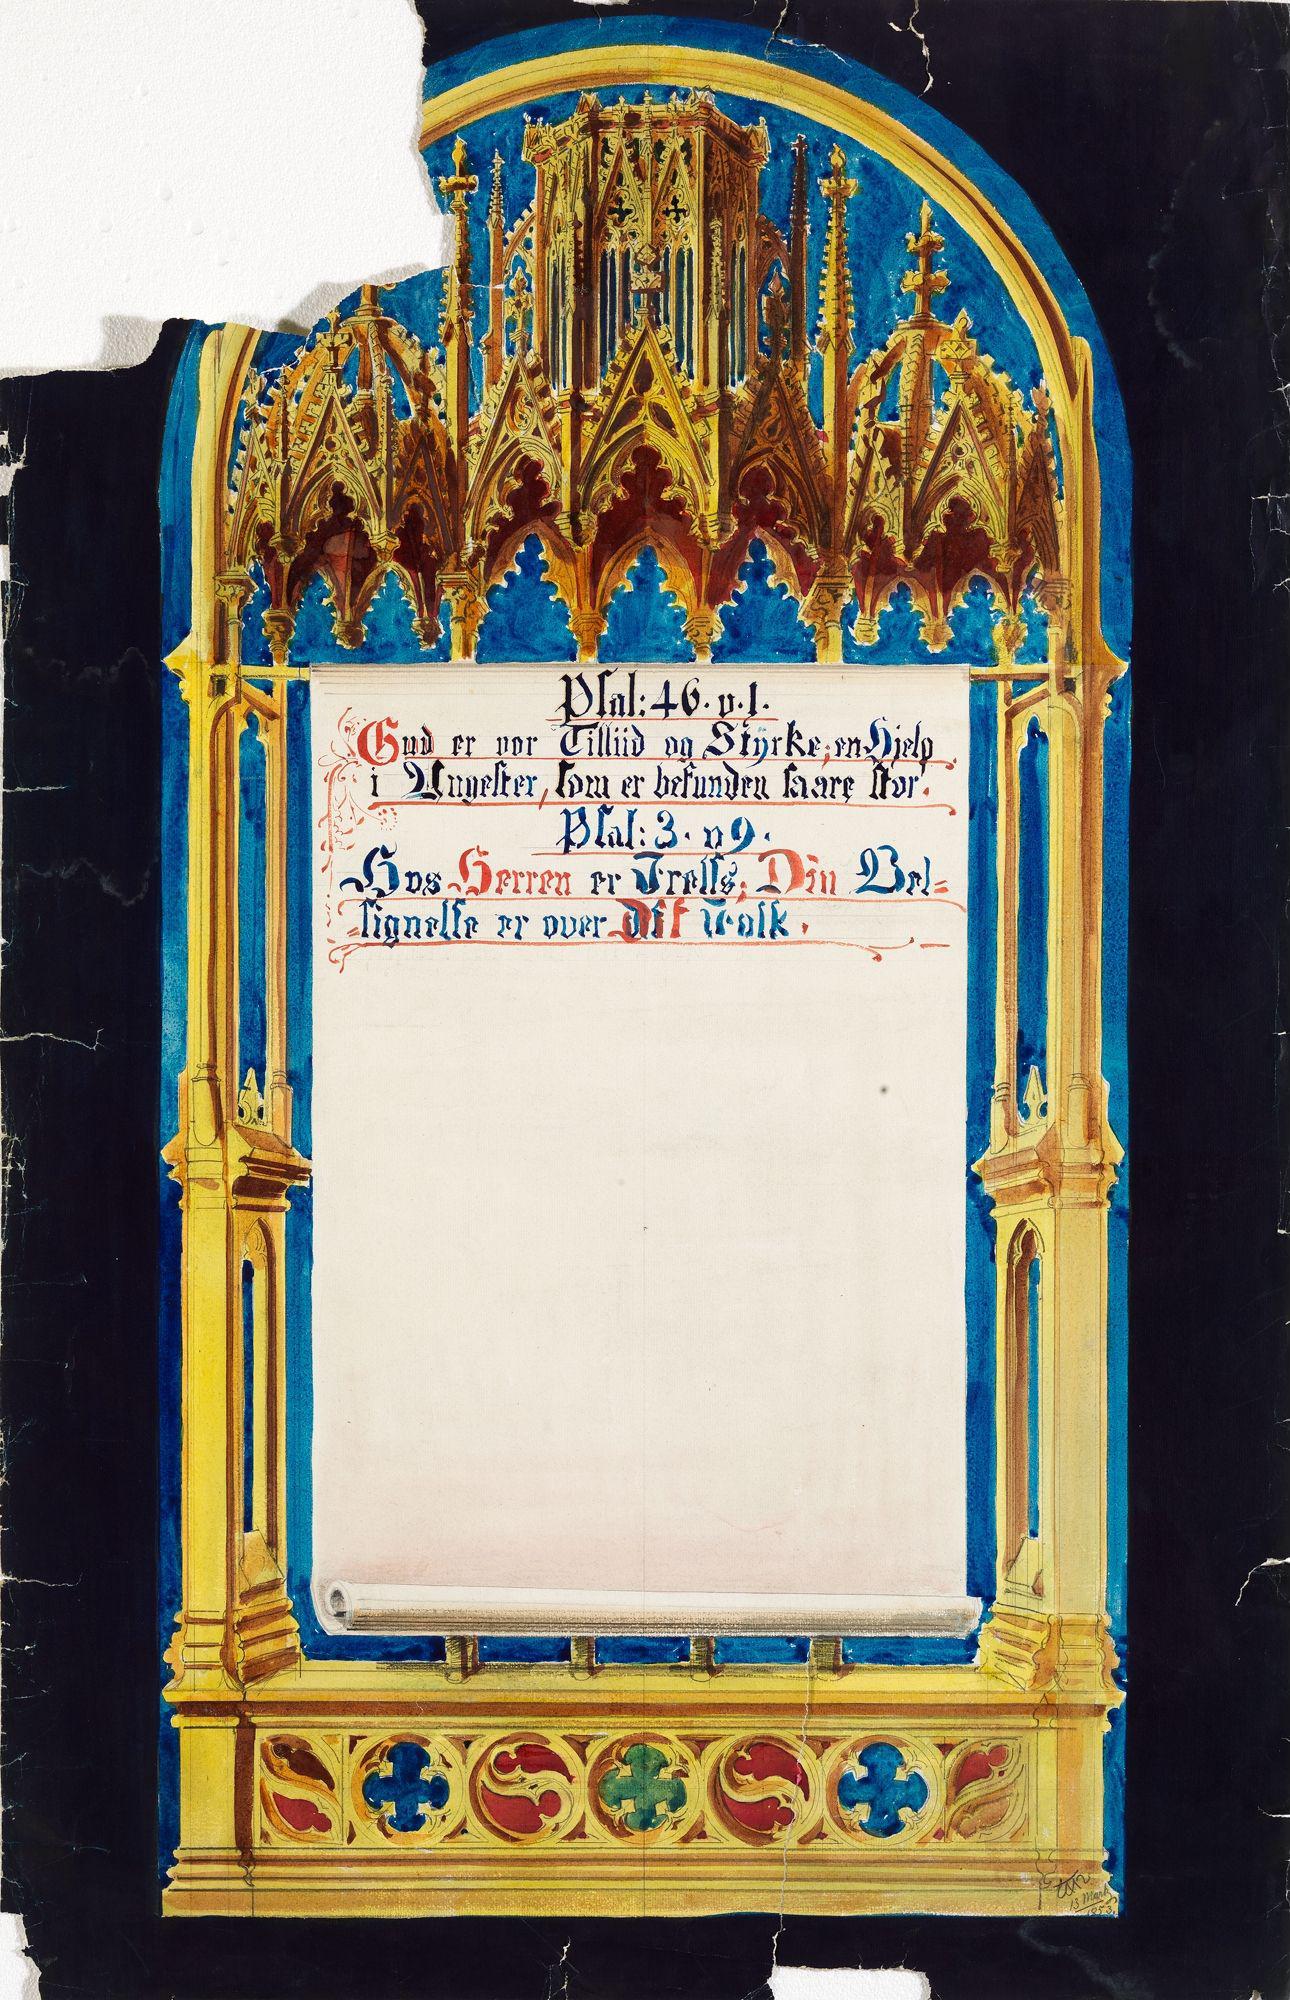 Psal: 46. v. 1.
Gud er vor Tilliid og Styrke; en Hjelp
i Angester, som er befunden saare stor.
Psal: 3. v 9.
Hos Herren er Frelse; Din Vel=
signelse er over Dit Folk.
13 Marts
1853.